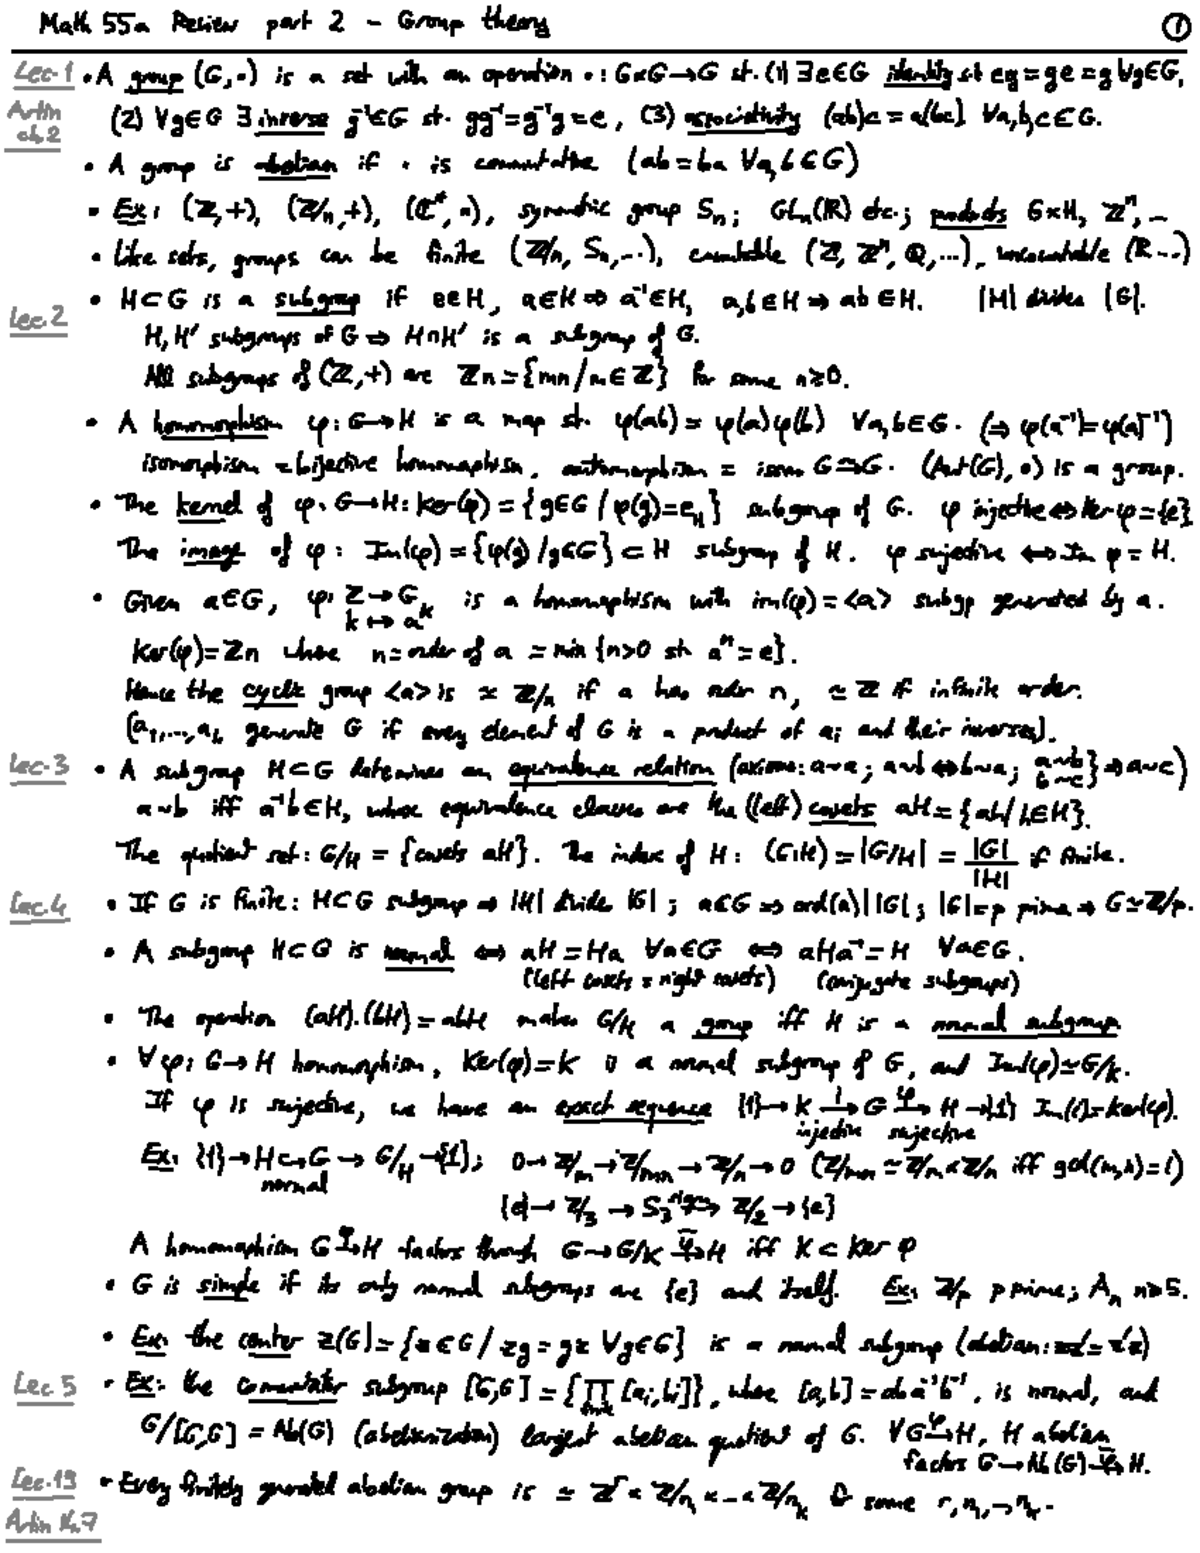 Math 55a Review part 2 - Group theory ①
Lec. 1 • A group (G, •) is a set with an operation • : G×G→G st. (1) ∃e∈G identity st eg = ge = g ∀g∈G,
Artin ch.2 (2) ∀g∈G ∃ inverse g⁻¹∈G st. gg⁻¹=g⁻¹g=e, (3) associativity (ab)c = a(bc) ∀a,b,c∈G.
• A group is abelian if • is commutative (ab = ba ∀a,b∈G)
• Ex: (Z,+), (Z/n,+), (C*,×), symmetric group Sₙ; GLₙ(R) etc.; products G×H, Zⁿ, ...
• Like sets, groups can be finite (Z/n, Sₙ, ...), countable (Z, Zⁿ, Q, ...), uncountable (R ...)
Lec. 2 • H⊂G is a subgroup if e∈H, a∈H ⇒ a⁻¹∈H, a,b∈H ⇒ ab∈H. |H| divides |G|.
H, H' subgroups of G ⇒ H∩H' is a subgroup of G.
All subgroups of (Z,+) are Zn = {mn / m∈Z} for some n≥0.
• A homomorphism φ: G→H is a map st. φ(ab) = φ(a)φ(b) ∀a,b∈G. (⇒ φ(a⁻¹)=φ(a)⁻¹)
isomorphism = bijective homomorphism, automorphism = isom. G≃G. (Aut(G), ∘) is a group.
• The kernel of φ: G→H: Ker(φ) = {g∈G / φ(g)=e_H} subgroup of G. φ injective ⇔ Ker φ={e}
The image of φ : Im(φ) = {φ(g) / g∈G} ⊂ H subgroup of H. φ surjective ⇔ Im φ = H.
• Given a∈G, φ: Z→G is a homomorphism with im(φ) = <a> subgp generated by a.
k ↦ aᵏ
Ker(φ)=Zn where n=order of a = min {n>0 st aⁿ = e}.
Hence the cyclic group <a> is ≃ Z/n if a has order n, ≃ Z if infinite order.
(a₁,...,aₖ generate G if every element of G is a product of aᵢ and their inverses).
Lec. 3 • A subgroup H⊂G determines an equivalence relation (axioms: a~a; a~b⇔b~a; a~b b~c} ⇒ a~c)
a~b iff a⁻¹b∈H, whose equivalence classes are the (left) cosets aH = {ah / h∈H}.
The quotient set: G/H = {cosets aH}. The index of H: (G:H) = |G/H| = |G|/|H| if finite.
Lec. 4 • If G is finite: H⊂G subgroup ⇒ |H| divides |G| ; a∈G ⇒ ord(a) | |G| ; |G|=p prime ⇒ G≃Z/p.
• A subgroup H⊂G is normal ⇔ aH = Ha ∀a∈G ⇔ aHa⁻¹ = H ∀a∈G.
(left cosets = right cosets) (conjugate subgroups)
• The operation (aH).(bH) = abH makes G/H a group iff H is a normal subgroup
• ∀φ: G→H homomorphism, Ker(φ)=K is a normal subgroup of G, and Im(φ)≃G/K.
If φ is surjective, we have an exact sequence {1}→K →ⁱ G →^φ H →{1} Im(i)=Ker(φ).
injective surjective
Ex: {1}→H↪G → G/H →{1}; 0→Z/m→Z/mn→Z/n→0 (Z/mn ≃ Z/m × Z/n iff gcd(m,n)=1)
normal
{e}→ Z/3 → S₃ →^sign Z/2 → {e}
A homomorphism G →^φ H factors through G→G/K →^φ̄ H iff K ⊂ Ker φ
• G is simple if its only normal subgroups are {e} and itself. Ex: Z/p p prime; Aₙ n≥5.
• Ex: the center Z(G) = {z∈G / zg = gz ∀g∈G} is a normal subgroup (abelian: zz' = z'z)
Lec. 5 • Ex: the commutator subgroup [G,G] = {∏ finite [aᵢ,bᵢ]}, where [a,b] = aba⁻¹b⁻¹, is normal, and
G/[G,G] = Ab(G) (abelianization) largest abelian quotient of G. ∀G →^φ H, H abelian
factors G→Ab(G) →^φ̄ H.
Lec. 13 • Every finitely generated abelian group is ≃ Zʳ × Z/n₁ × ... × Z/nₖ for some r, n₁, ..., nₖ.
Artin